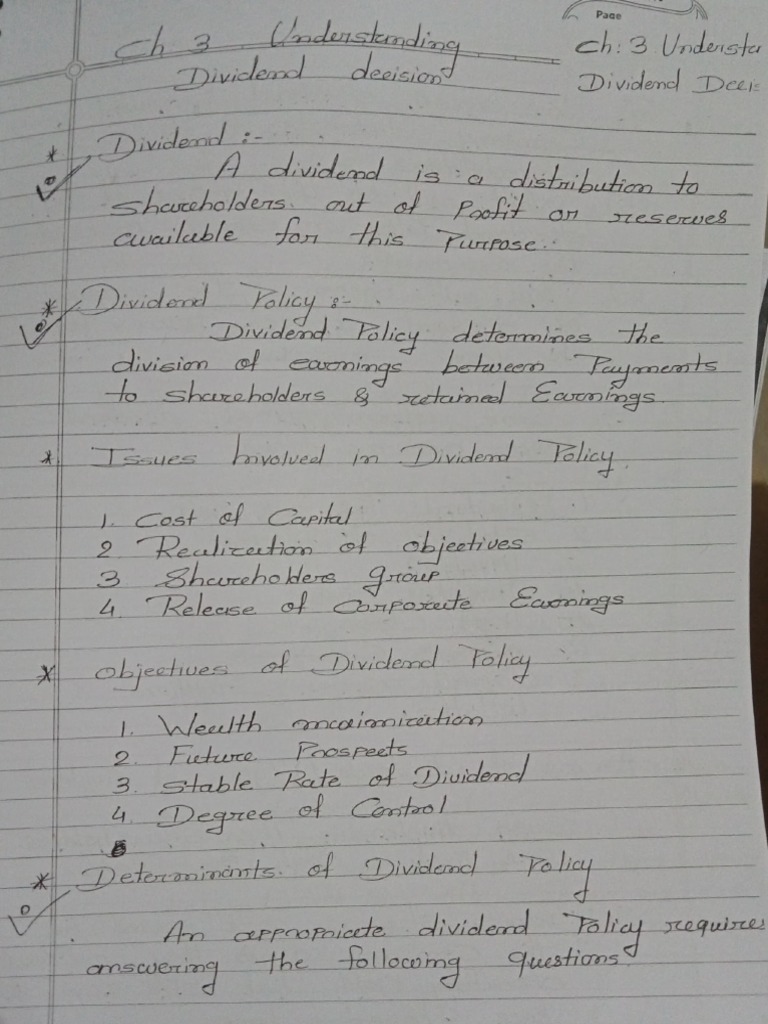 Page
Ch 3 Understanding
Dividend decision
Ch: 3 Understa
Dividend Deci
* Dividend :-
A dividend is a distribution to
shareholders out of Profit or reserves
available for this Purpose.
* Dividend Policy :-
Dividend Policy determines the
division of earnings between Payments
to shareholders & retained Earnings.
* Issues Involved in Dividend Policy.
1. Cost of Capital
2 Realization of objectives
3 Shareholders group
4. Release of Corporate Earnings
* Objectives of Dividend Policy
1. Wealth maximization
2. Future Prospects
3. Stable Rate of Dividend
4. Degree of Control
* Determinants of Dividend Policy
An appropriate dividend Policy requires
answering the following questions.